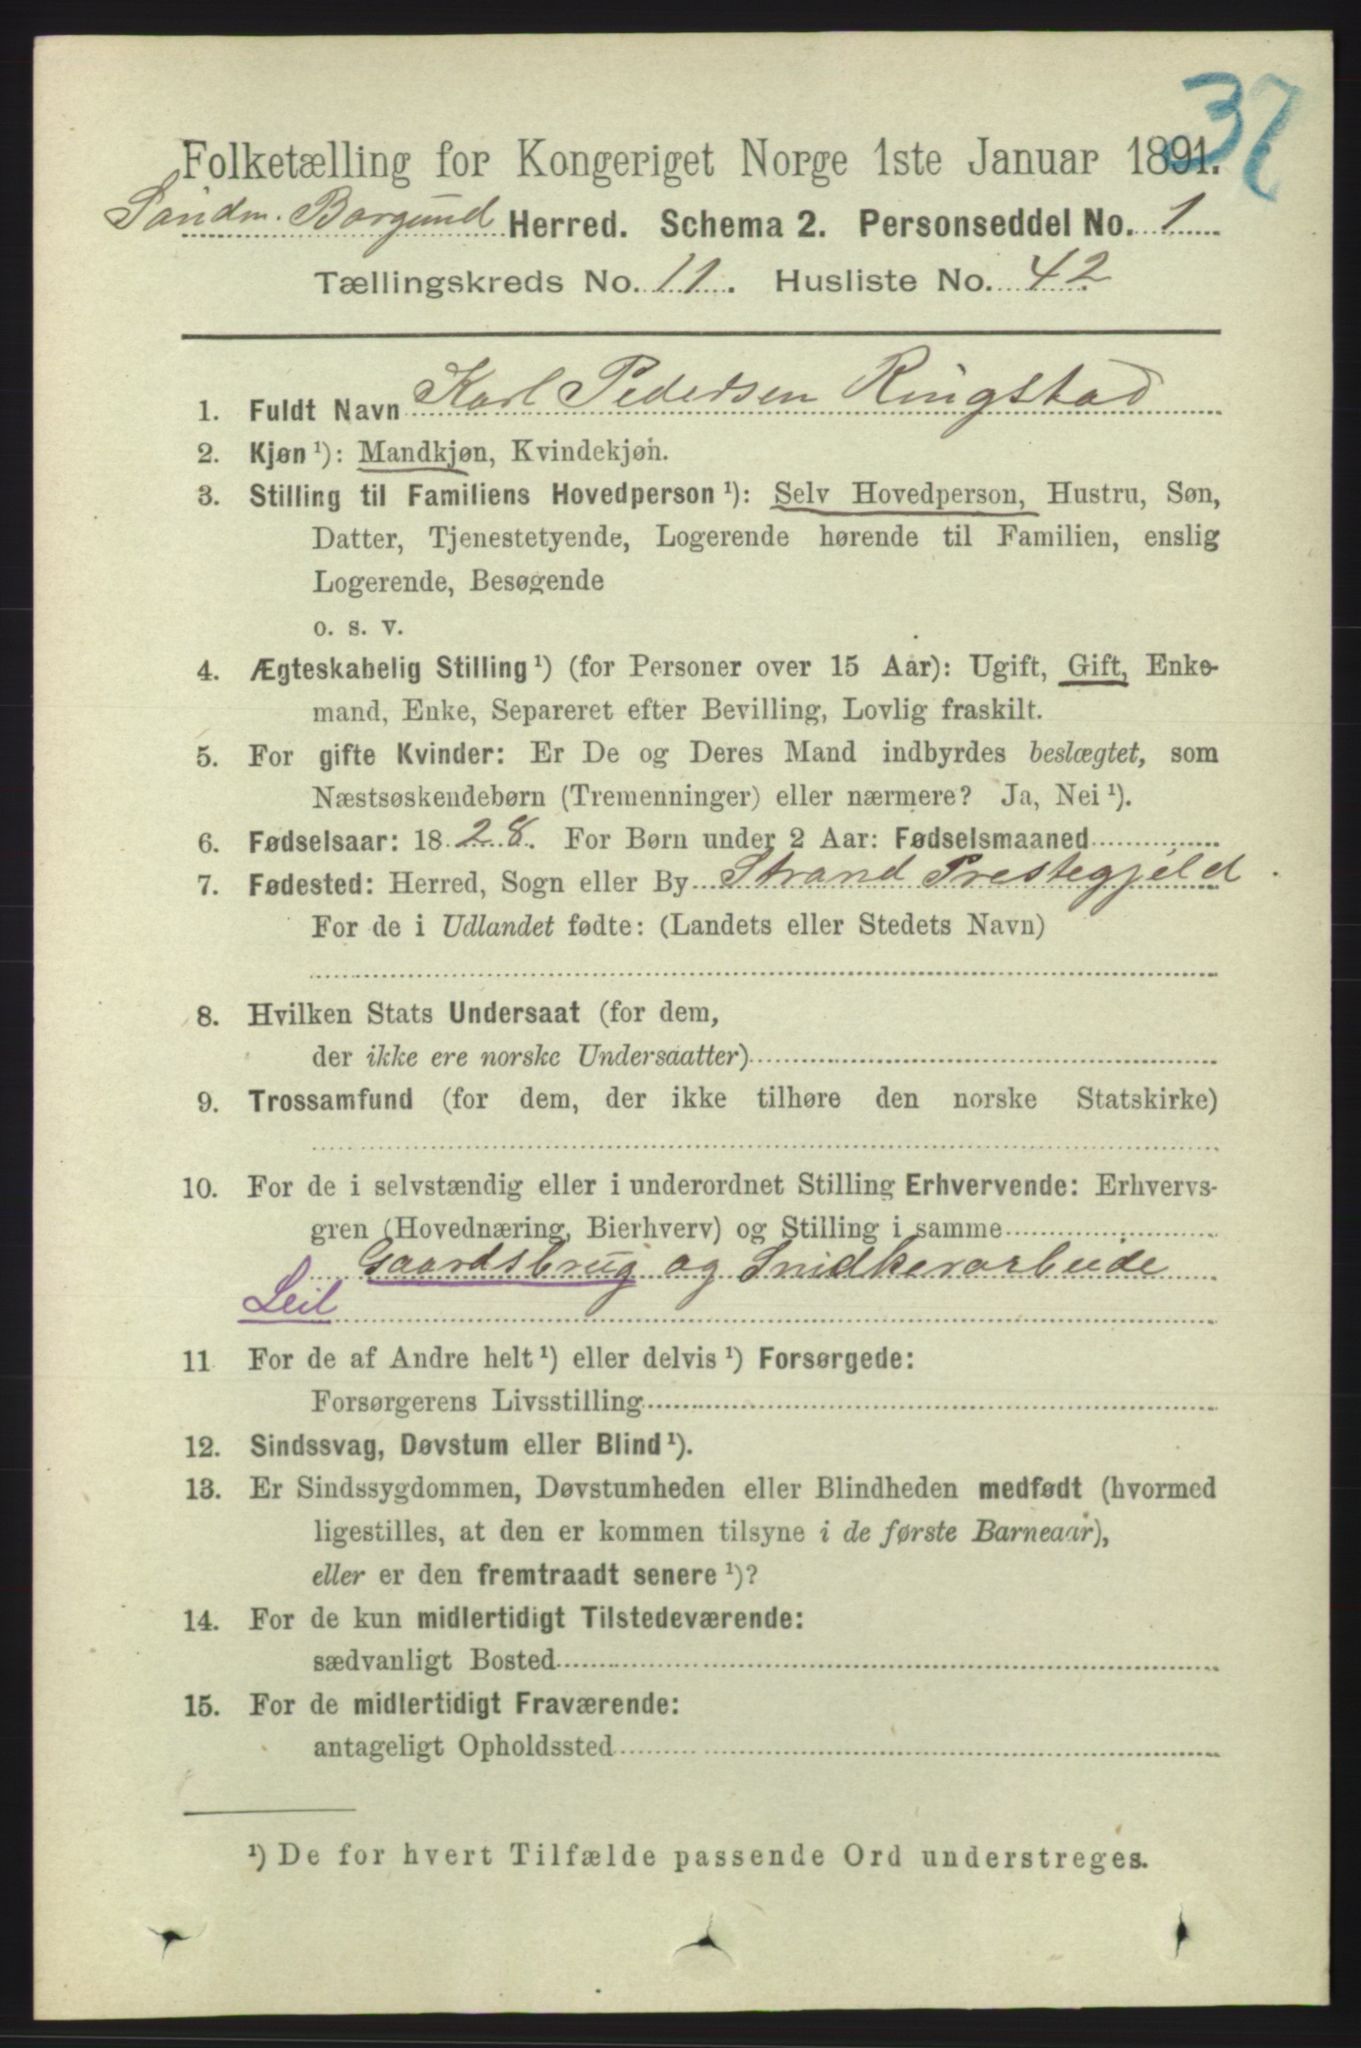 37
Folketælling for Kongeriget Norge 1ste Januar 1891.
Søndm. Borgund Herred. Schema 2. Personseddel No. 1
Tællingskreds No. 11. Husliste No. 42
1. Fuldt Navn Karl Pedersen Ringstad
2. Kjøn¹): Mandkjøn, Kvindekjøn.
3. Stilling til Familiens Hovedperson¹): Selv Hovedperson, Hustru, Søn,
Datter, Tjenestetyende, Logerende hørende til Familien, enslig
Logerende, Besøgende
o. s. v.
4. Ægteskabelig Stilling¹) (for Personer over 15 Aar): Ugift, Gift, Enke-
mand, Enke, Separeret efter Bevilling, Lovlig fraskilt.
5. For gifte Kvinder: Er De og Deres Mand indbyrdes beslægtet, som
Næstsøskendebørn (Tremenninger) eller nærmere? Ja, Nei¹).
6. Fødselsaar: 1828. For Børn under 2 Aar: Fødselsmaaned
7. Fødested: Herred, Sogn eller By Strand Prestegjeld
For de i Udlandet fødte: (Landets eller Stedets Navn)
8. Hvilken Stats Undersaat (for dem,
der ikke ere norske Undersaatter)
9. Trossamfund (for dem, der ikke tilhøre den norske Statskirke)
10. For de i selvstændig eller i underordnet Stilling Erhvervende: Erhvervs-
gren (Hovednæring, Bierhverv) og Stilling i samme
Gaardsbrug og Snidkerarbeide
Leil
11 For de af Andre helt¹) eller delvis¹) Forsørgede:
Forsørgerens Livsstilling
12. Sindssvag, Døvstum eller Blind¹).
13. Er Sindssygdommen, Døvstumheden eller Blindheden medfødt (hvormed
ligestilles, at den er kommen tilsyne i de første Barneaar),
eller er den fremtraadt senere¹)?
14. For de kun midlertidigt Tilstedeværende:
sædvanligt Bosted
15. For de midlertidigt Fraværende:
antageligt Opholdssted
¹) De for hvert Tilfælde passende Ord understreges.